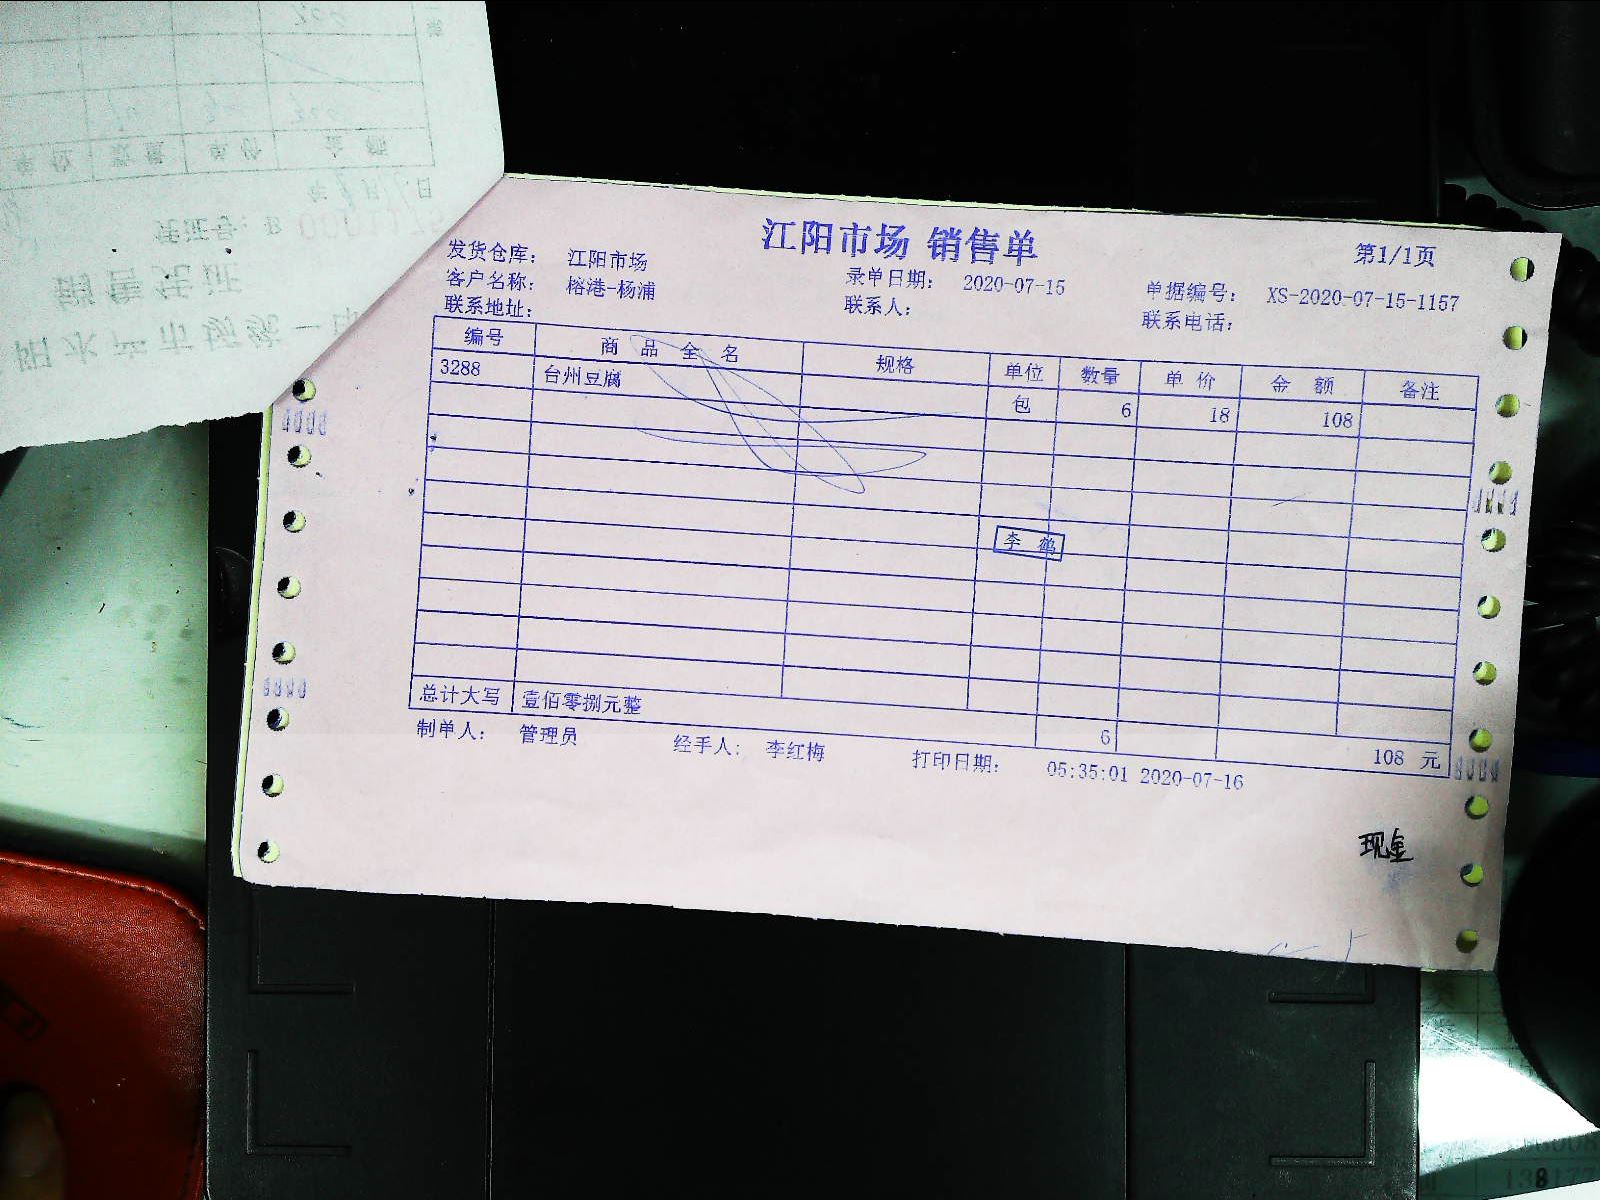 江阳市场 销售单
第1/1页
发货仓库： 江阳市场
客户名称： 榕港-杨浦 录单日期： 2020-07-15 单据编号： XS-2020-07-15-1157
联系地址： 联系人： 联系电话：
编号 商品全名 规格 单位 数量 单价 金额 备注
3288 台州豆腐 包 6 18 108
李鹤
总计大写 壹佰零捌元整 6 108 元
制单人： 管理员 经手人： 李红梅 打印日期： 05:35:01 2020-07-16
现金
单价 数量 单价 金额
年 月 日
凭证号：
销售凭证
阳水产市场统一